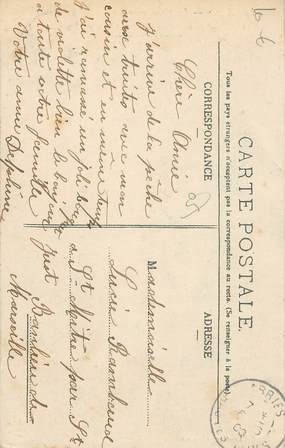 CARTE POSTALE
Tous les pays étrangers n'acceptent pas la correspondance au recto. (Se renseigner à la poste).
CORRESPONDANCE
ADRESSE
Chère Amie
J'arrive de la pêche
aux truites avec mon
cousin et en même temps
j'ai ramassé un joli bouquet
de violette bien le bonjour
à toute votre famille
Votre amie Delphine
Mademoiselle
Lucie
St Mitre par St
Just Banlieue de
Marseille